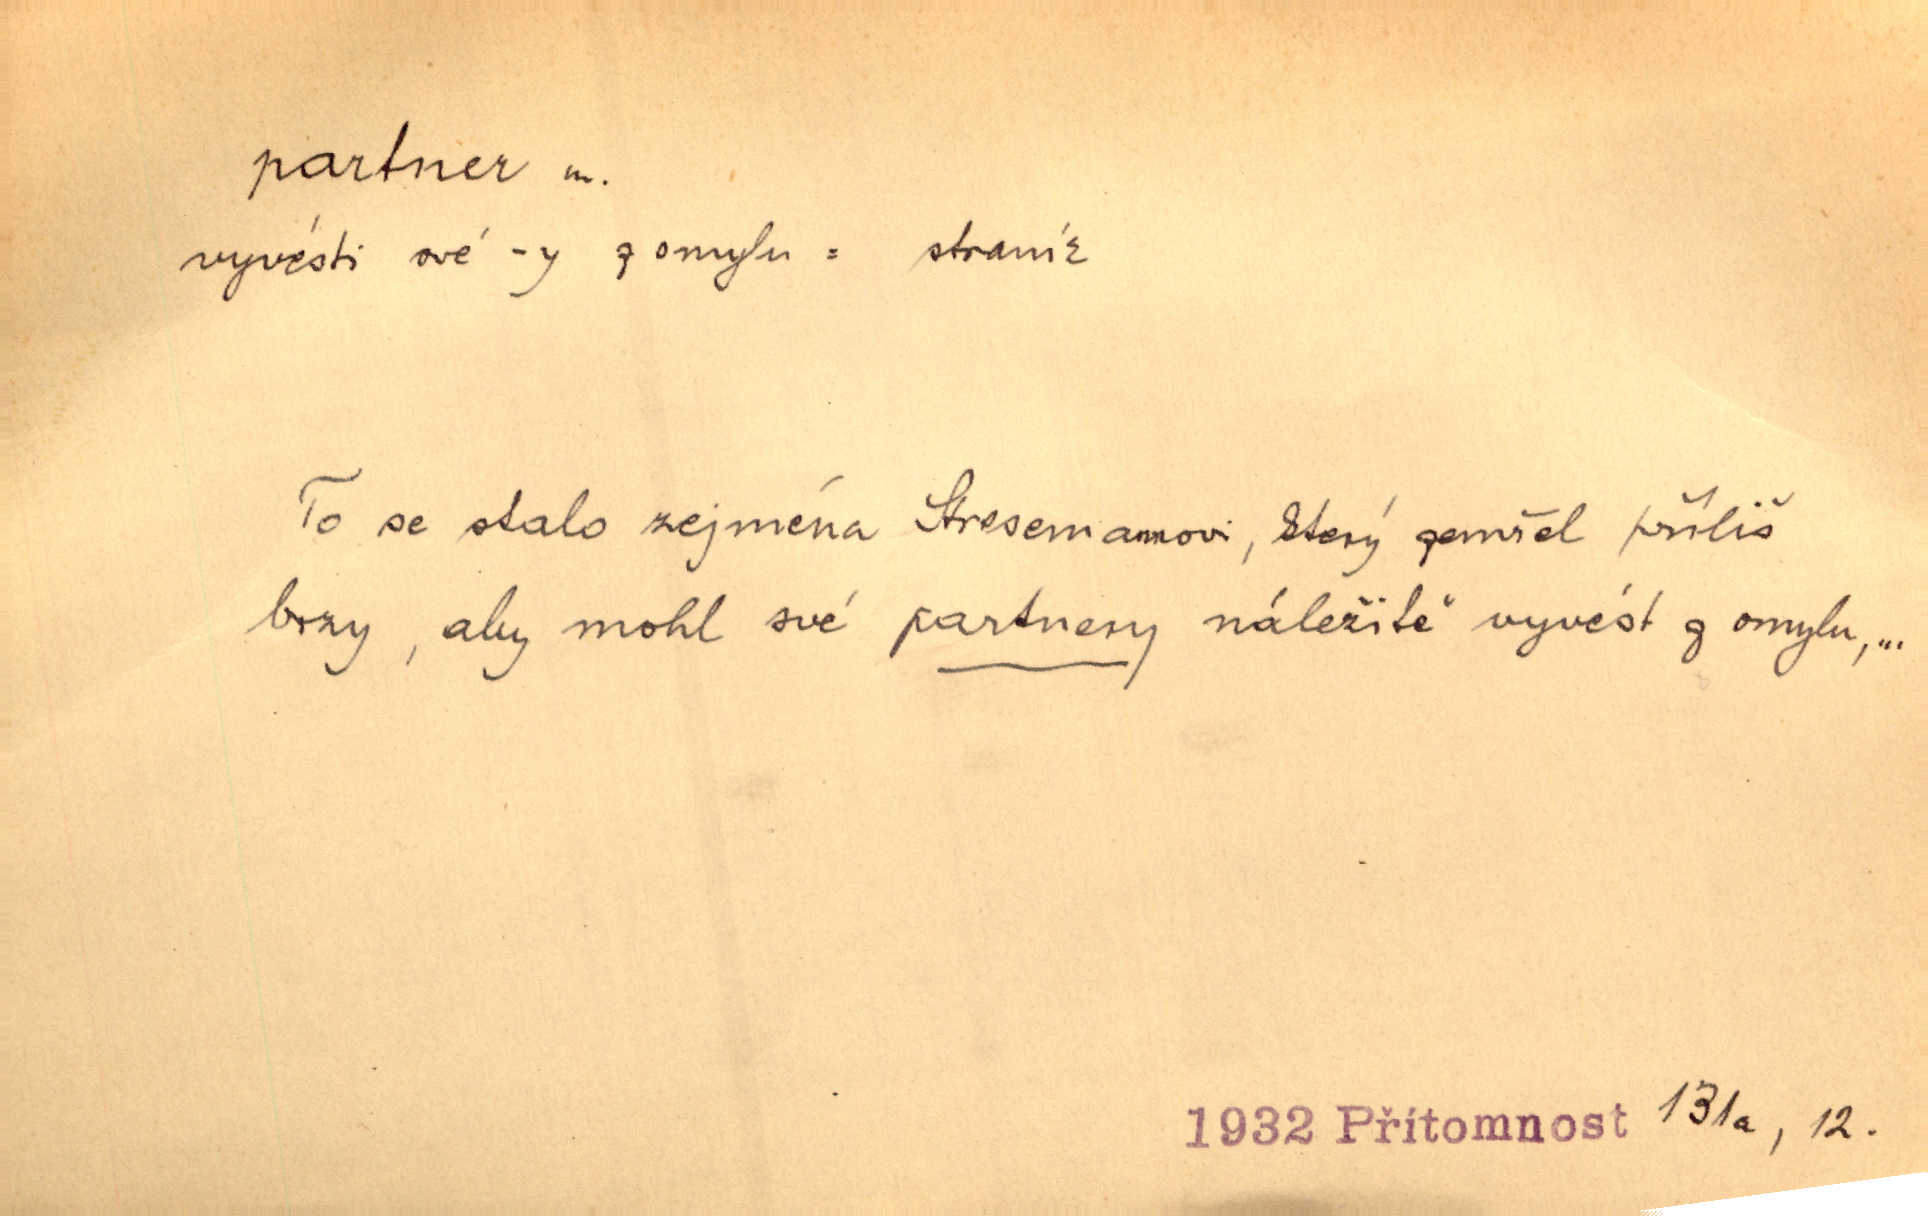 partner m.
vyvésti své -y z omylu = straník
To se stalo zejména Stresemannovi, který zemřel příliš
brzy, aby mohl své partnery náležitě vyvést z omylu,...
1932 Přítomnost 131a, 12.